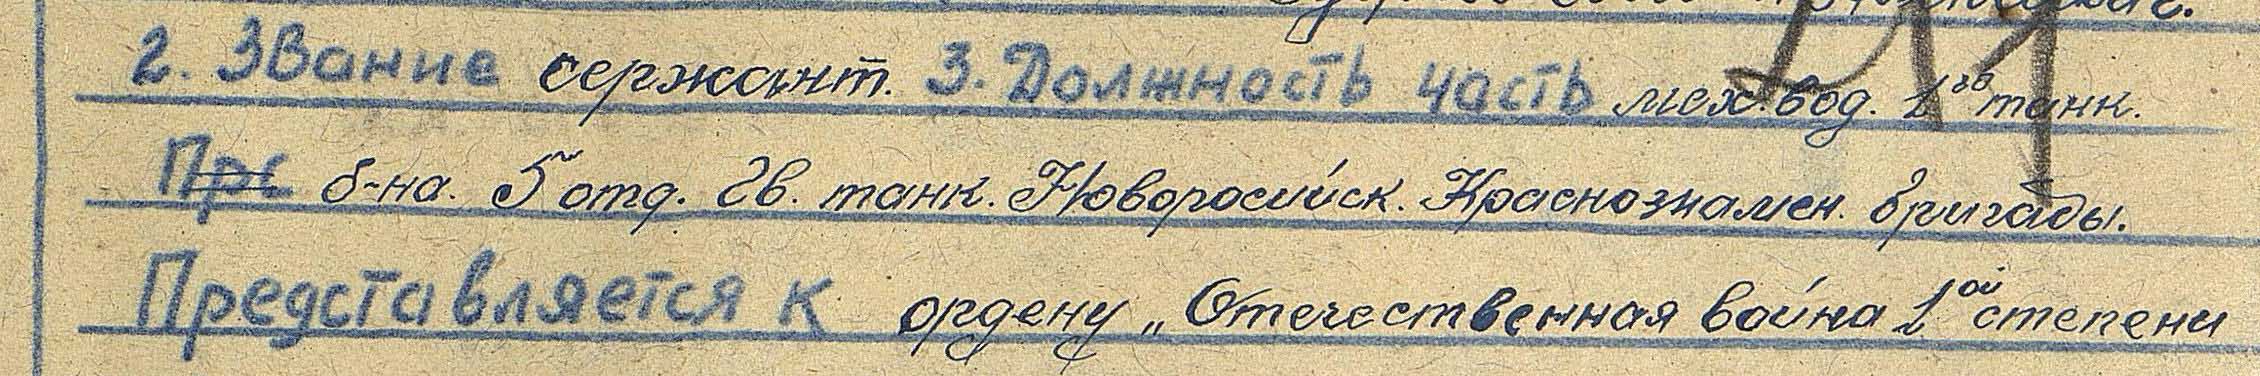 2. Звание сержант. 3. Должность часть мех.вод. 1 гв танк.
б-на. 5 отд. Гв. танк. Новоросийск. Краснознамен. бригады.
Представляется к ордену „Отечественная война 1ой степени